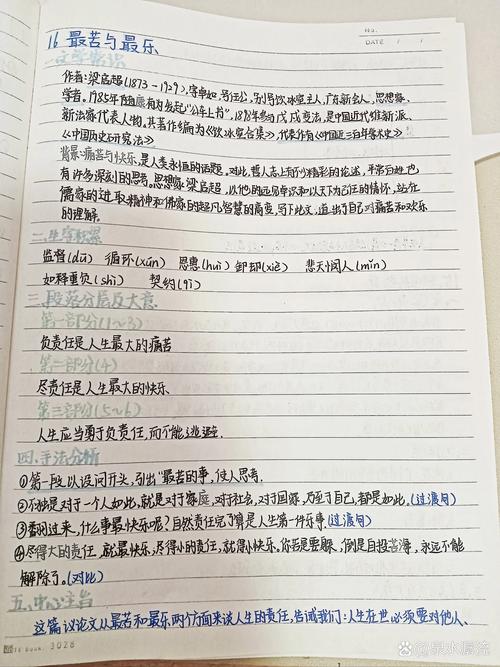 NO.
DATE / /
16 最苦与最乐
一.文学常识
作者:梁启超(1873-1929),字卓如,号任公,别号饮冰室主人,广东新会人,思想家、
学者。1985年随康有为发起"公车上书",1898年参与戊戌变法,是中国近代维新派、
新法家代表人物,其著作编为《饮冰室合集》,代表作有《中国近三百年学术史》
《中国历史研究法》
背景:痛苦与快乐,是人类永恒的话题,对此,哲人志士有许多精彩的论述,平常百姓也
有许多深刻的思考。思想家梁启超,以他的远见卓识和以天下为己任的情怀,站在
儒家的进取精神和佛家的超凡智慧的高度,写下此文,道出了自己对痛苦和欢乐
的理解。
二.生字积累
监督(dū) 循环(xún) 恩惠(huì) 卸却(xiè) 悲天悯人(mǐn)
如释重负(shì) 契约(qì)
三.段落分层及大意
第一部分(1~3)
负责任是人生最大的痛苦
第二部分(4)
尽责任是人生最大的快乐
第三部分(5~6)
人生应当勇于负责任,而不能逃避.
四.手法分析
①第一段以设问开头,引出"最苦的事,使人思考.
②不独是对于一个人如此,就是对于家庭,对于社会,对于国家,乃至于自己,都是如此.(过渡句)
③翻过来,什么事最快乐呢?自然责任完了算是人生第一件乐事.(过渡句)
④尽得大的责任,就最快乐,尽得小的责任,就得小快乐。你若是要躲,倒是自投苦海,永远不能
解除了。(对比)
五.中心主旨
这篇议论文从最苦和最乐两个方面来谈人生的责任,告诫我们:人生在世必须要对他人、
3028